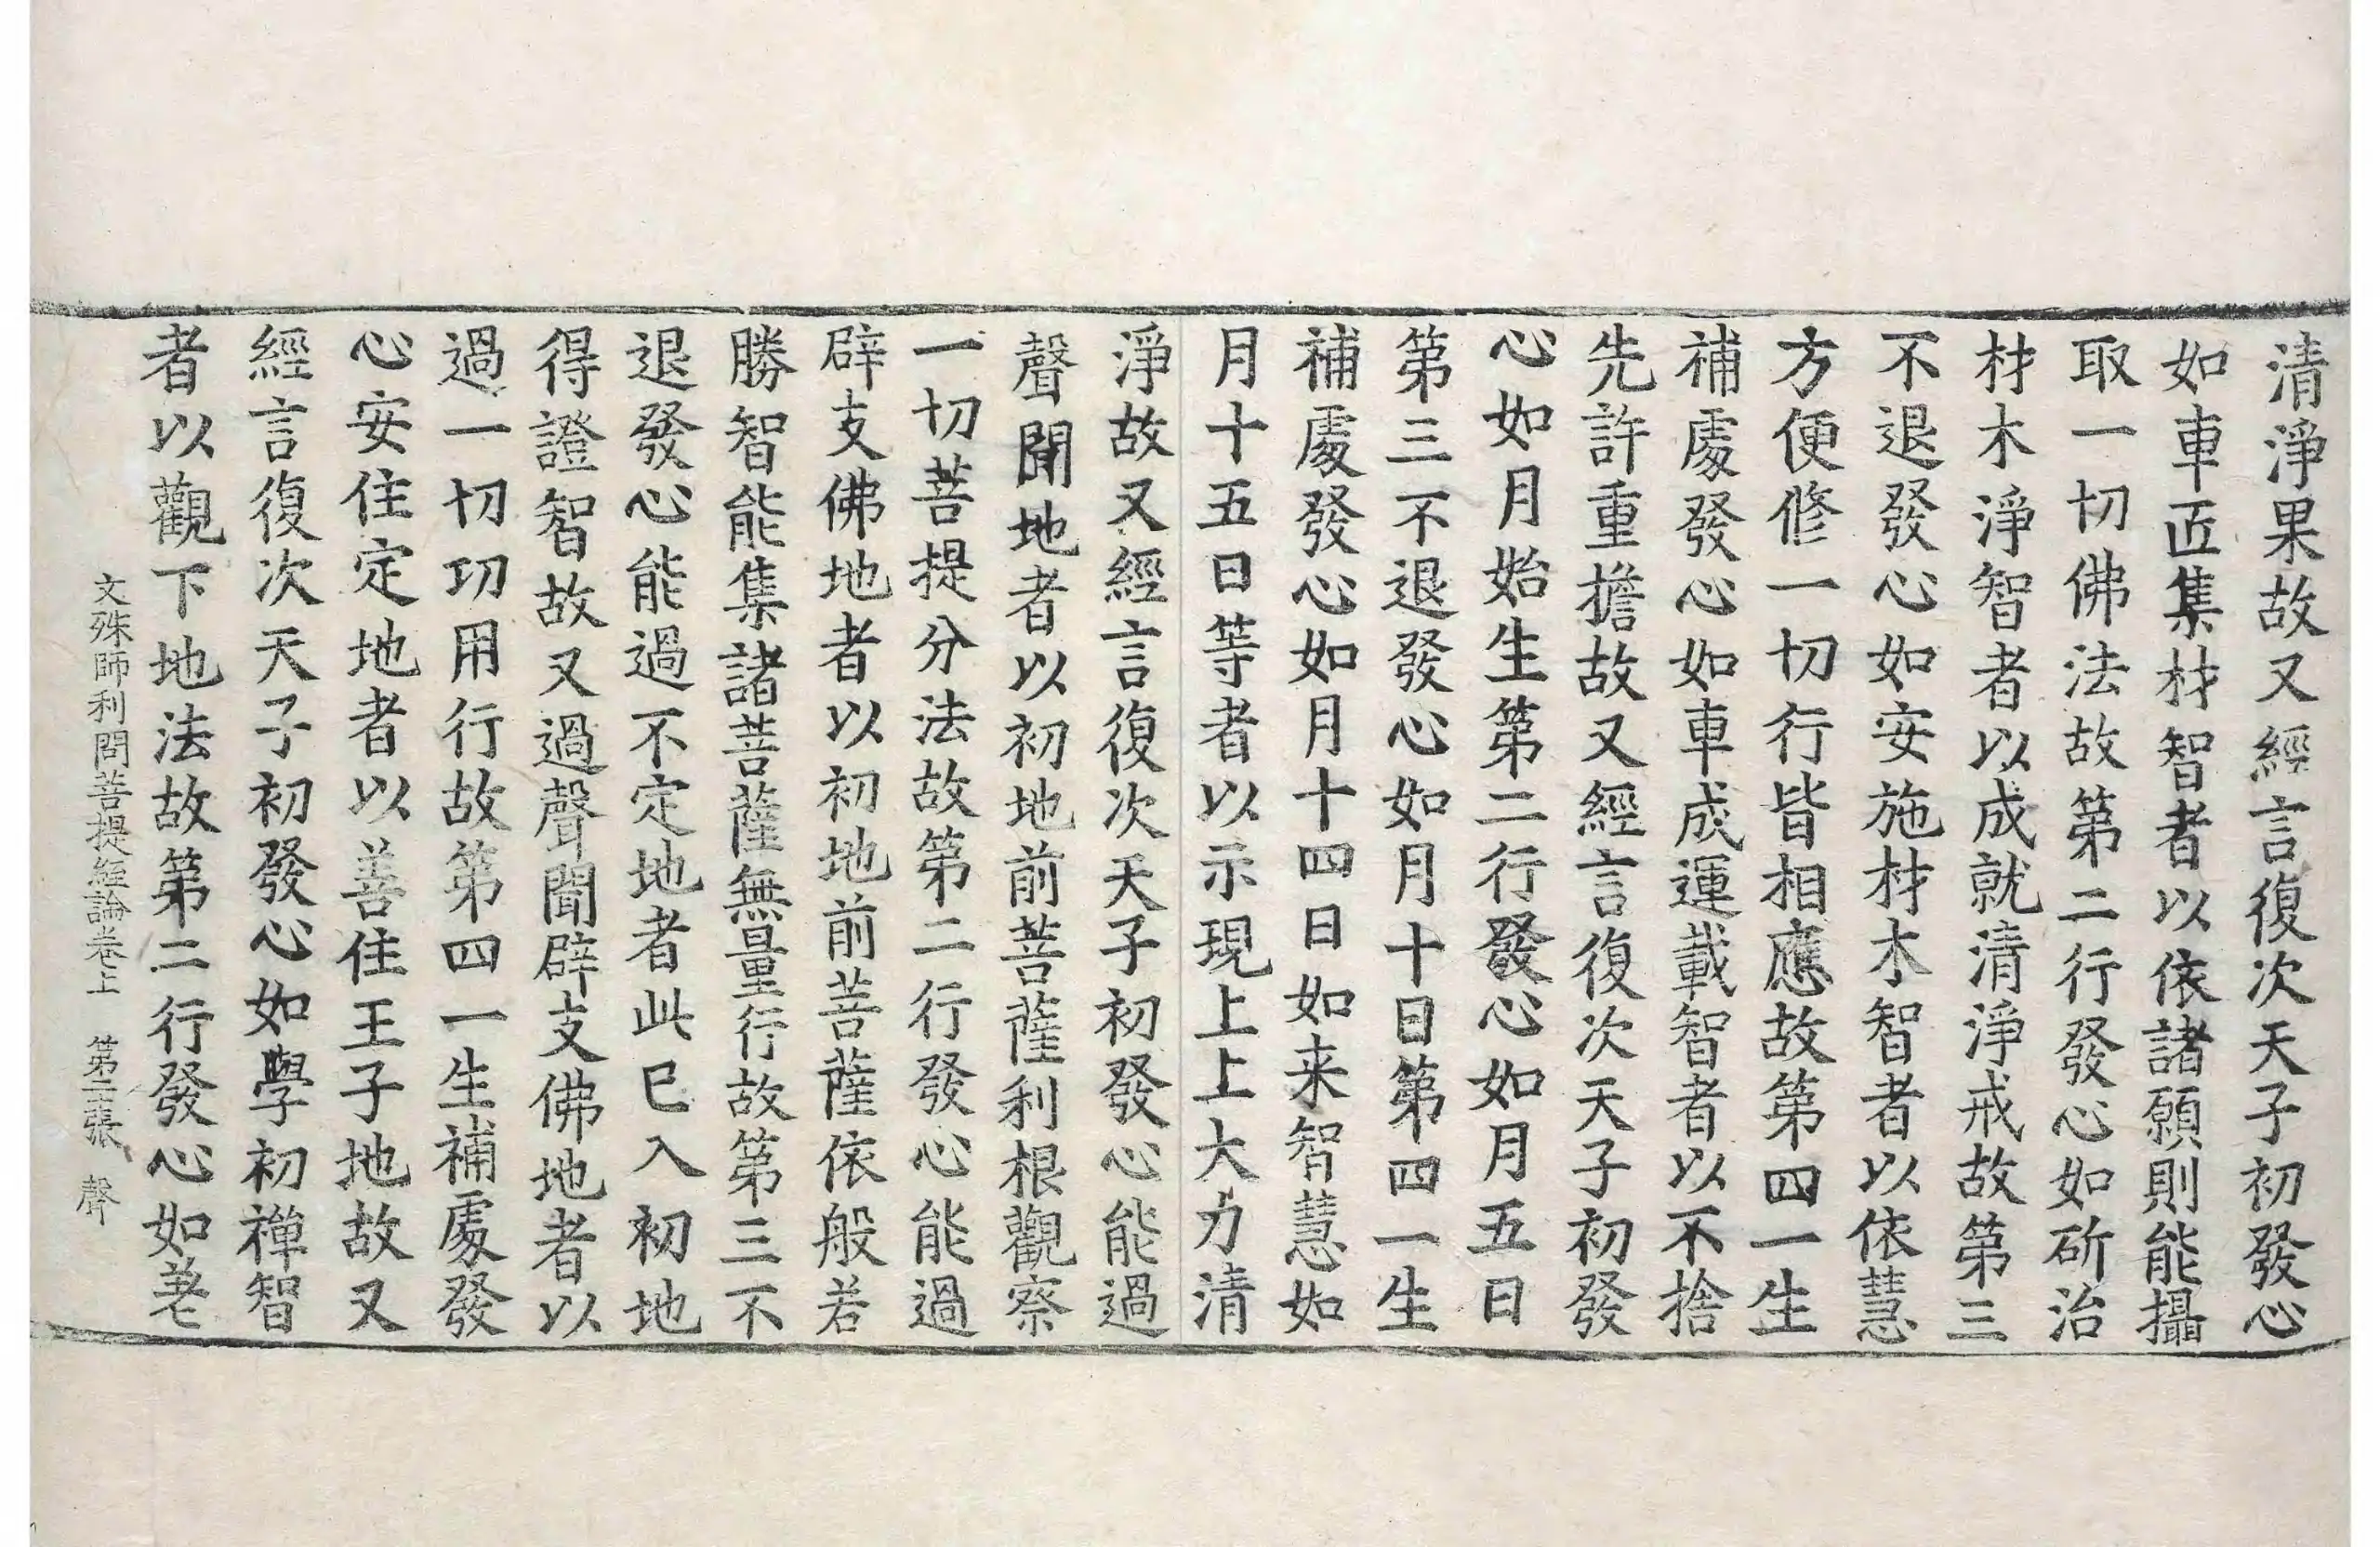 清淨果故又經言復次天子初發心
如車匠集材智者以依諸願則能攝
取一切佛法故第二行發心如斫治
材木淨智者以成就清淨戒故第三
不退發心如安施材木智者以依慧
方便修一切行皆相應故第四一生
補處發心如車成運載智者以不捨
先許重擔故又經言復次天子初發
心如月始生第二行發心如月五日
第三不退發心如月十日第四一生
補處發心如月十四日如来智慧如
月十五日等者以示現上上大力清
淨故又經言復次天子初發心能過
聲聞地者以初地前菩薩利根觀察
一切菩提分法故第二行發心能過
辟支佛地者以初地前菩薩依般若
勝智能集諸菩薩無量行故第三不
退發心能過不定地者此已入初地
得證智故又過聲聞辟支佛地者以
過一切功用行故第四一生補處發
心安住定地者以善住王子地故又
經言復次天子初發心如學初禪智
者以觀下地法故第二行發心如差
文殊師利問菩提經論卷上 第二張 聲